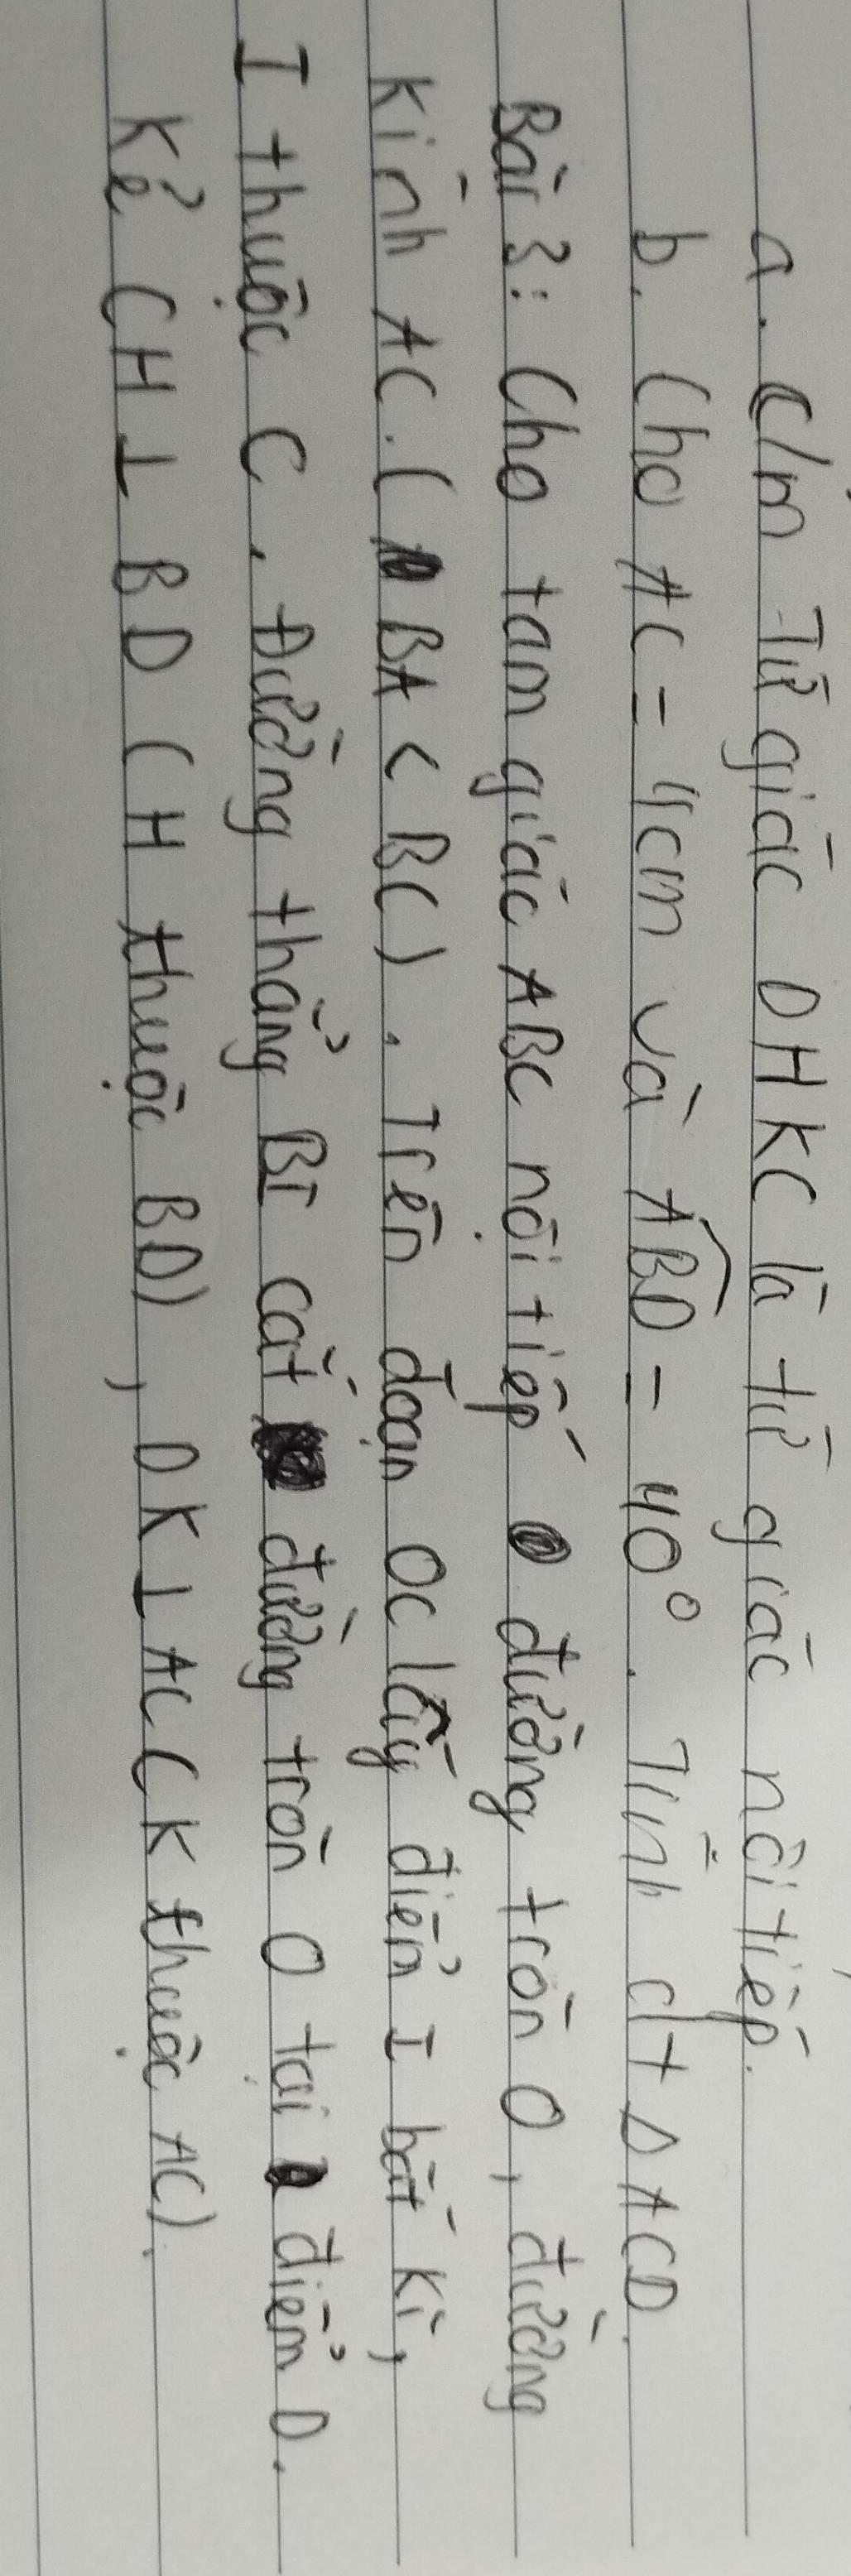 a. C/m Tứ giác DHKC là tứ giác nội tiếp.
b. Cho AC = 4cm và ABD = 40°. Tính dt Δ ACD.
Bài 3: Cho tam giác ABC nội tiếp đường tròn O, đường
kính AC. ( BA < BC). Trên đoạn OC lấy điểm I bất kì,
I thuộc C. Đường thẳng BI cắt đường tròn O tại điểm D.
Kẻ CH ⊥ BD (H thuộc BD), DK ⊥ AC (K thuộc AC).